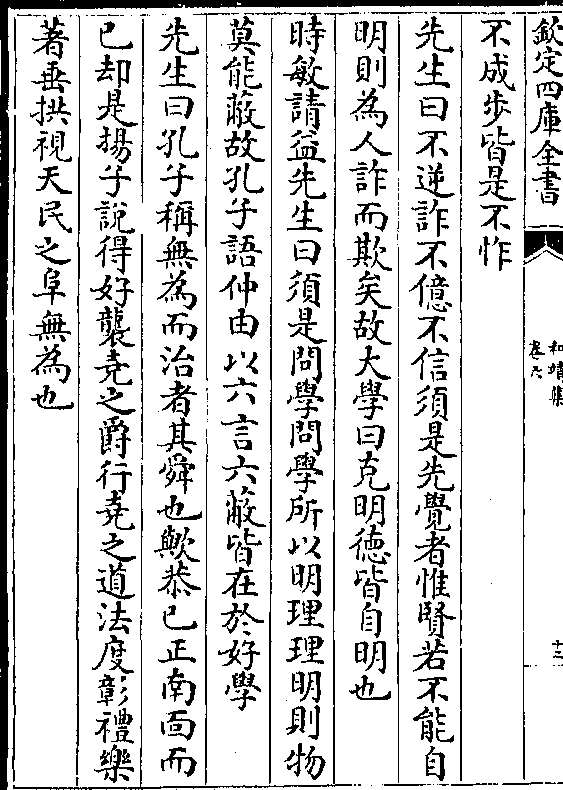 欽定四庫全書
和靖集
卷六
十二
不成步皆是不怍
先生曰不逆詐不億不信須是先覺者惟賢若不能自
明則為人詐而欺矣故大學曰克明德皆自明也
時敏請益先生曰須是問學問學所以明理理明則物
莫能蔽故孔子語仲由以六言六蔽皆在於好學
先生曰孔子稱無為而治者其舜也歟恭已正南面而
已却是揚子說得好襲堯之爵行堯之道法度彰禮樂
著垂拱視天民之阜無為也